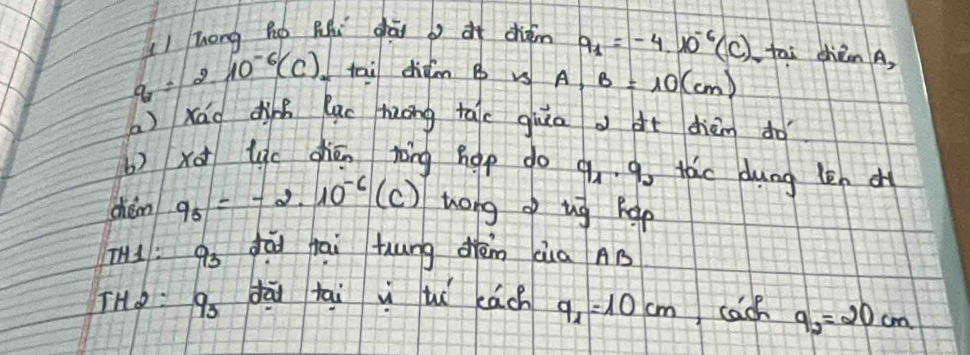 1) Trong kho khí đặt 2 đt điểm q₁ = -4.10⁻⁶(C), tại điểm A,
q₂ = 2.10⁻⁶(C). tại điểm B A, B = 10(cm)
a) xác định lực tương tác giữa 2 đt điểm đó.
b) xđ lực điện tổng hợp do q₁. q₂ tác dụng lên đt
điểm q₃ = -2.10⁻⁶(C) trong 2 hợp
TH1: q₃ đặt tại trung điểm của AB
TH2: q₃ đặt tại vị trí cách q₁=10 cm, cách q₂=20 cm